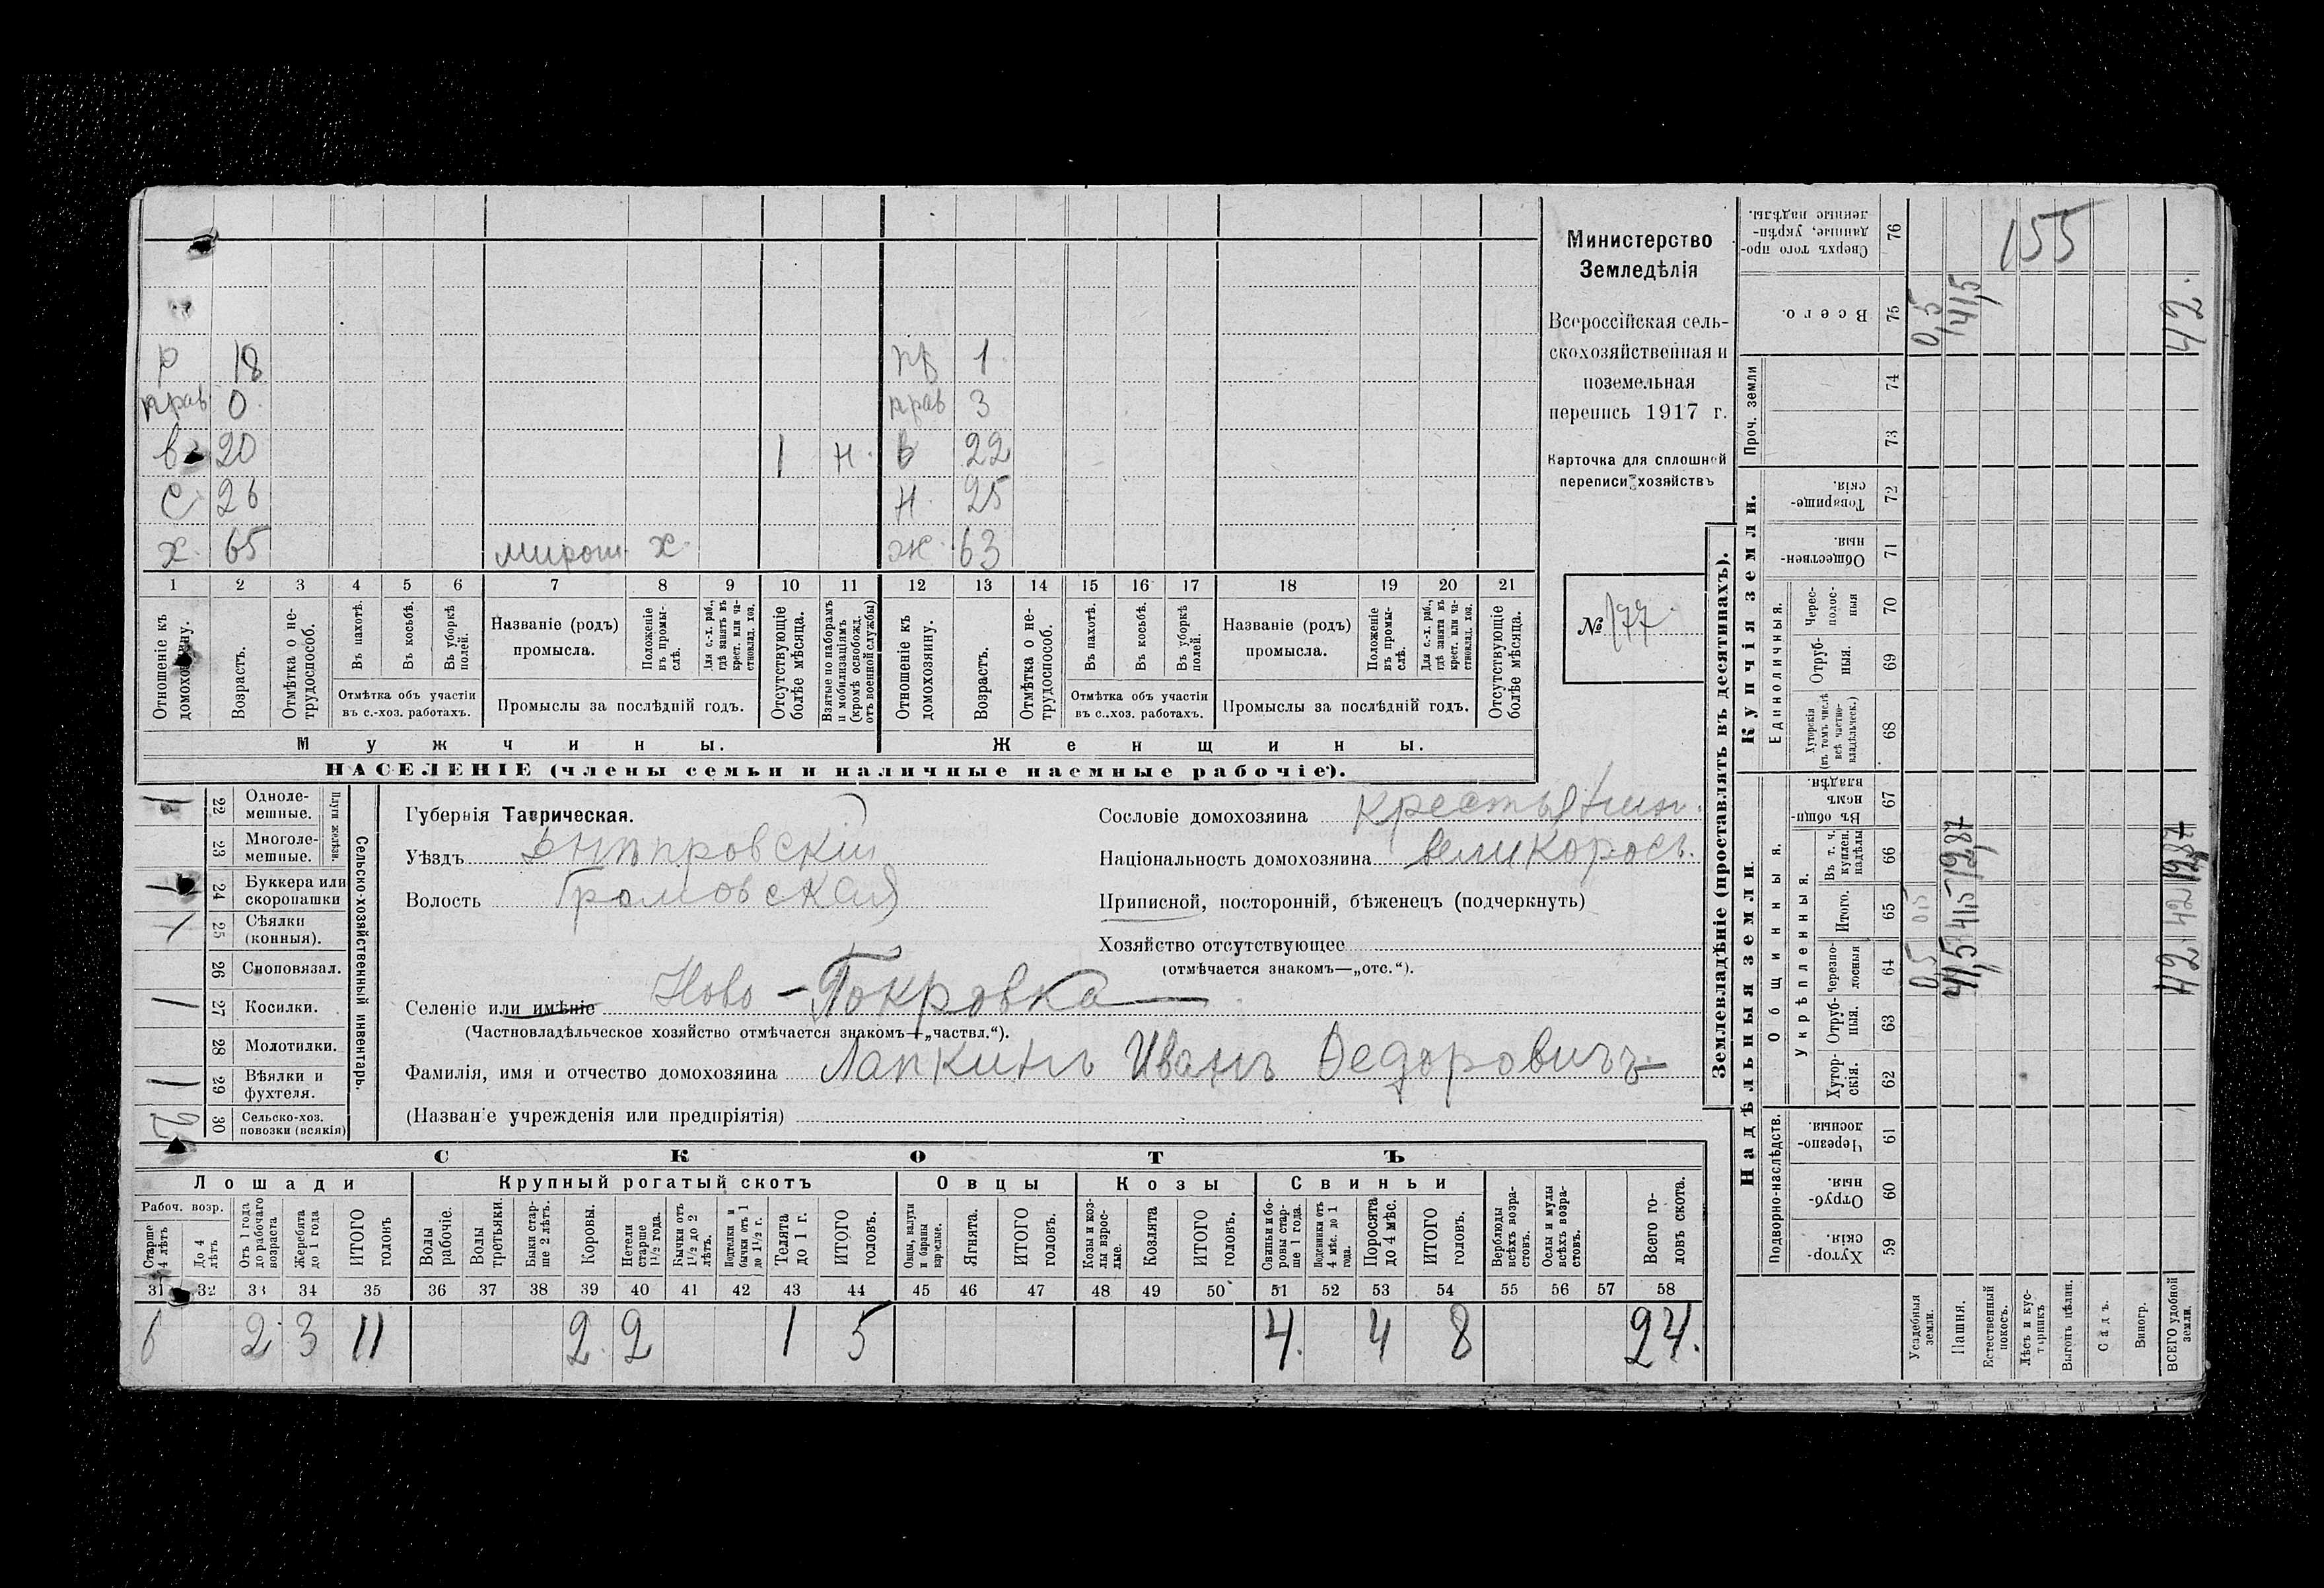 Министерство
Земледѣлія
Всероссійская сель-
скохозяйственная и
поземельная
перепись 1917 г.
Карточка для сплошной
переписи хозяйствъ
№ 177
р 18 пр 1
прав 0 прав 3
в 20 1 н. в 22
с 26 н. 25
х. 65 мирош. х. ж. 63
1 2 3 4 5 6 7 8 9 10 11 12 13 14 15 16 17 18 19 20 21
Отношеніе къ домохозяину.
Возрастъ.
Отмѣтка о не-трудоспособ.
Въ пахотѣ.
Въ косьбѣ.
Въ уборкѣ полей.
Отмѣтка объ участіи
въ с.-хоз. работахъ.
Названіе (родъ)
промысла.
Положеніе въ промы-слѣ.
Для с.-х. раб., гдѣ занятъ въ крест. или ча-стновлад. хоз.
Промыслы за послѣдній годъ.
Отсутствующіе болѣе мѣсяца.
Взятые по наборамъ и мобилизаціямъ (кромѣ освобожд. отъ военной службы)
Отношеніе къ домохозяину.
Возрастъ.
Отмѣтка о не-трудоспособ.
Въ пахотѣ.
Въ косьбѣ.
Въ уборкѣ полей.
Отмѣтка объ участіи
въ с.-хоз. работахъ.
Названіе (родъ)
промысла.
Положеніе въ промы-слѣ.
Для с.-х. раб., гдѣ занята въ крест. или ча-стновлад. хоз.
Промыслы за послѣдній годъ.
Отсутствующіе болѣе мѣсяца.
Мужчины.
Женщины.
НАСЕЛЕНІЕ (члены семьи и наличные наемные рабочіе).
Сельско-хозяйственный инвентарь.
Плуги желѣзн.
1 22 Одноле-мешные.
23 Многоле-мешные.
1 24 Буккера или скоропашки
1 25 Сѣялки (конныя).
26 Сноповязал.
1 27 Косилки.
28 Молотилки.
1 29 Вѣялки и фухтеля.
2 30 Сельско-хоз. повозки (всякія)
Губернія Таврическая.
Уѣздъ Днѣпровскій
Волость Громовская
Сословіе домохозяина крестьянин.
Національность домохозяина великоросъ.
Приписной, посторонній, бѣженецъ (подчеркнуть)
Хозяйство отсутствующее
(отмѣчается знакомъ—„отс.“).
Селеніе или имѣніе Ново-Покровка
(Частновладѣльческое хозяйство отмѣчается знакомъ—„частвл.“).
Фамилія, имя и отчество домохозяина Лапкинъ Иванъ Федоровичъ
(Названіе учрежденія или предпріятія)
СКОТЪ
Лошади
Крупный рогатый скотъ
Овцы
Козы
Свиньи
Рабоч. возр.
Старше 4 лѣтъ
До 4 лѣтъ
Отъ 1 года до рабочаго возраста
Жеребята до 1 года
ИТОГО головъ
Волы рабочіе.
Волы третьяки.
Быки стар-ше 2 лѣтъ.
Коровы.
Нетели старше 1½ года.
Бычки отъ 1½ до 2 лѣтъ.
Подтелки и бычки отъ 1 до 1½ г.
Телята до 1 г.
ИТОГО головъ.
Овцы, валухи и бараны взрослые.
Ягнята.
ИТОГО головъ.
Козы и коз-лы взрос-лые.
Козлята
ИТОГО головъ.
Свиньи и бо-ровы стар-ше 1 года.
Подсвинки отъ 4 мѣс. до 1 года.
Поросята до 4 мѣс.
ИТОГО головъ.
Верблюды всѣхъ возра-стовъ.
Ослы и мулы всѣхъ возра-стовъ.
Всего го-ловъ скота.
31 32 33 34 35 36 37 38 39 40 41 42 43 44 45 46 47 48 49 50 51 52 53 54 55 56 57 58
6 2 3 11 2 2 1 5 4 4 8 24.
Землевладѣніе (проставлять въ десятинахъ).
Надѣльныя земли.
Купчія земли.
Подворно-наслѣдств.
Общинныя.
Укрѣпленныя.
Единоличныя.
Проч. земли
Хутор-скія. 59
Отруб-ныя. 60
Черезпо-лосныя 61
Хутор-скія. 62
Отруб-ныя. 63
Черезпо-лосныя 64
Итого. 65
Въ т. ч. куплен. надѣлы 66
Въ общи-номъ владѣн. 67
Хуторскія (въ томъ числѣ всѣ частно-владѣльческ.) 68
Отруб-ныя. 69
Черес-полос-ныя 70
Обществен-ныя. 71
Товарище-скія. 72
73
74
Всего. 75
Сверхъ того про-данные, укрѣп-ленные надѣлы. 76
Усадебныя земли. 0,5 0,5 0,5
Пашня. 41,5 41,5 12,87 41,5
Естественный покосъ.
Лѣсъ и кус-тарникъ
Выгонъ цѣлин.
Садъ.
Виногр.
ВСЕГО удобной земли. 42 42 12,87 42.
155